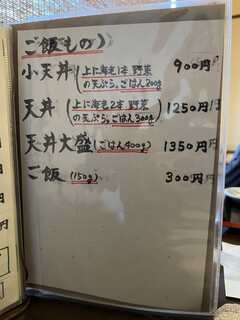 ご飯もの)
小天丼(上に海老1本 野菜
の天ぷら。ごはん200g) 900円
天丼(上に海老2本 野菜
の天ぷら。ごはん300g) 1250円
天丼大盛(ごはん400g) 1350円
ご飯(150g) 300円
円
円